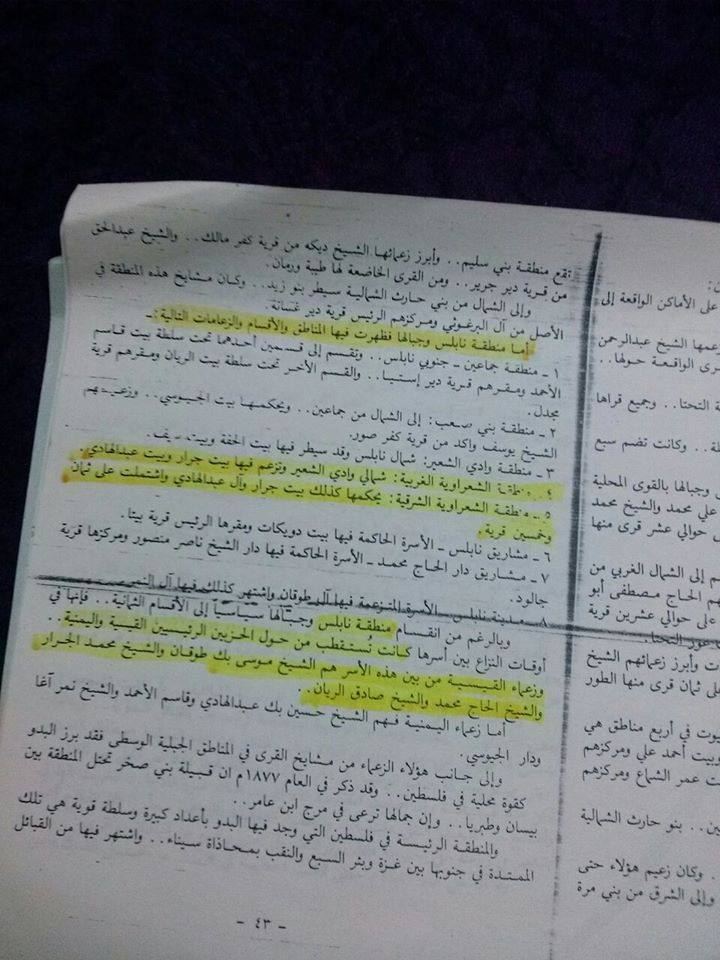 تقع منطقة بني سليم.. وأبرز زعمائها الشيخ ديكه من قرية كفر مالك.. والشيخ عبدالحق
من قرية دير جرير.. ومن القرى الخاضعة لها طيبة ورمان.
وإلى الشمال من بني حارث الشمالية سيطر بنو زيد.. وكان مشايخ هذه المنطقة في
الأصل من آل البرغوثي ومركزهم الرئيس قرية دير غسانة.
أما منطقة نابلس وجبالها فظهرت فيها المناطق والأقسام والزعامات التالية:ـ
١ ـ منطقة جماعين ـ جنوبي نابلس.. وتنقسم إلى قسمين أحدهما تحت سلطة بيت قاسم
الأحمد ومقرهم قرية دير إستيا.. والقسم الآخر تحت سلطة بيت الريان ومقرهم قرية
مجدل.
٢ ـ منطقة بني صعب: إلى الشمال من جماعين.. ويحكمها بيت الجيوسي.. وزعيمهم
الشيخ يوسف واكد من قرية كفر صور.
٣ ـ منطقة وادي الشعير: شمال نابلس وقد سيطر فيها بيت الحفة وبيت سيف.
٤ ـ منطقة الشعراوية الغربية: شمالي وادي الشعير وتزعم فيها بيت جرار وبيت عبدالهادي.
٥ ـ منطقة الشعراوية الشرقية: يحكمها كذلك بيت جرار وآل عبدالهادي واشتملت على ثمان
وخمسين قرية.
٦ ـ مشاريق نابلس ـ الأسرة الحاكمة فيها بيت دويكات ومقرها الرئيس قرية بيتا.
٧ ـ مشاريق دار الحاج محمد ـ الأسرة الحاكمة فيها دار الشيخ ناصر منصور ومركزها قرية
جالود.
٨ ـ مدينة نابلس ـ الأسرة المتزعمة فيها آل طوقان واشتهر كذلك فيها آل النمر.
وبالرغم من انقسام منطقة نابلس وجبالها سياسياً إلى الأقسام الثمانية.. فإنها في
أوقات النزاع بين أسرها كانت تُستقطب من حول الحزبين الرئيسيين القيسية واليمنية..
وزعماء القيسية من بين هذه الأسر هم الشيخ موسى بك طوقان والشيخ محمد الجرار
والشيخ الحاج محمد والشيخ صادق الريان..
أما زعماء اليمنية فهم الشيخ حسين بك عبدالهادي وقاسم الأحمد والشيخ نمر آغا
ودار الجيوسي.
وإلى جانب هؤلاء الزعماء من مشايخ القرى في المناطق الجبلية الوسطى فقد برز البدو
كقوة محلية في فلسطين.. وقد ذكر في العام ١٨٧٧م ان قبيلة بني صخر تحتل المنطقة بين
بيسان وطبريا.. وإن جمالها ترعى في مرج ابن عامر..
والمنطقة الرئيسة في فلسطين التي وجد فيها البدو بأعداد كبيرة وسلطة قوية هي تلك
الممتدة في جنوبها بين غزة وبئر السبع والنقب بمحاذاة سيناء.. واشتهر فيها من القبائل
ـ ٤٣ ـ
على الأماكن الواقعة إلى
عمها الشيخ عبدالرحمن
قرى الواقعة حولها..
ة التحتا.. وجميع قراها
.. وكانت تضم سبع
وجبالها بالقوى المحلية
علي محمد والشيخ محمد
حوالي عشر قرى منها
م إلى الشمال الغربي من
هم الحاج مصطفى أبو
على حوالي عشرين قرية
غور التحتا.
وأبرز زعمائهم الشيخ
ثمان قرى منها الطور
بوت في أربع مناطق هي
وبيت أحمد علي ومركزهم
ت عمر الشماع ومركزهم
ن.. بنو حارث الشمالية
. وكان زعيم هؤلاء حتى
وإلى الشرق من بني مرة